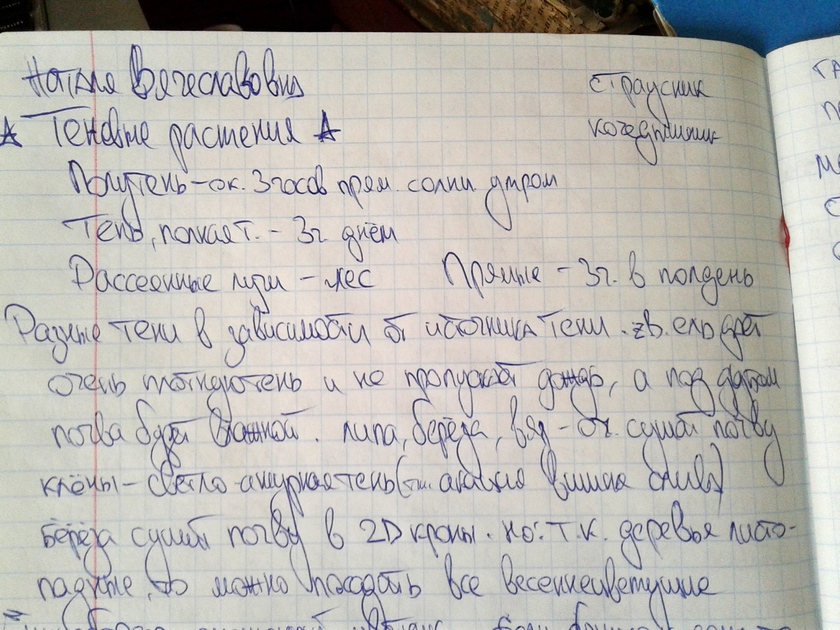 Наталья Вячеславовна
Страусник
☆ Теневые растения ☆
кочедыжник
Полутень - ок. 3 часов прям. солнц утром
Тень, полная т. - 3ч. днём
Рассеенные лучи - лес Прямые - 3ч. в полдень
Разные тени в зависимости от источника тени. ель даёт
очень плотную тень и не пропускает дождь, а под дубом
почва будет влажной. липа, берёза, вяз - оч. сушат почву
клёны - светло-ажурная тень (акация вишня слива)
Берёза сушит почву в 2D кроны. но: т.к. деревья листо-
падные, то можно посадить все весеннецветущие